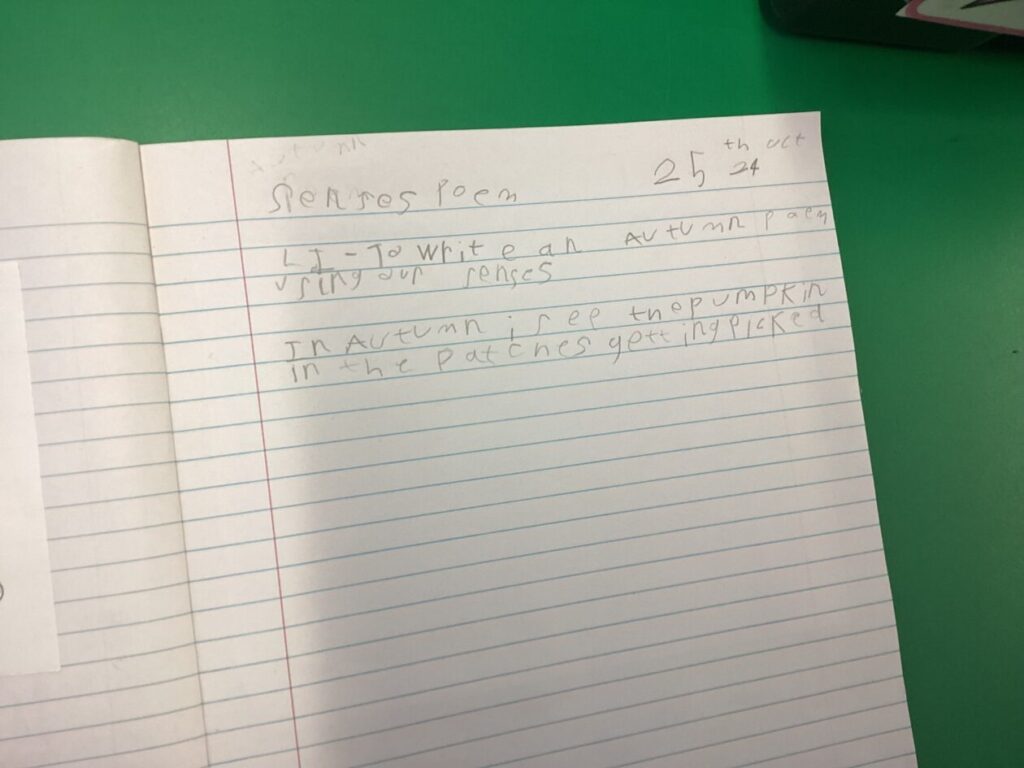 Autumn
Senses Poem
25th Oct 24
LI - To write an AUtUmn poem
using our senses
In AUtUmn i see the pUmpkin
in the patches getting picked